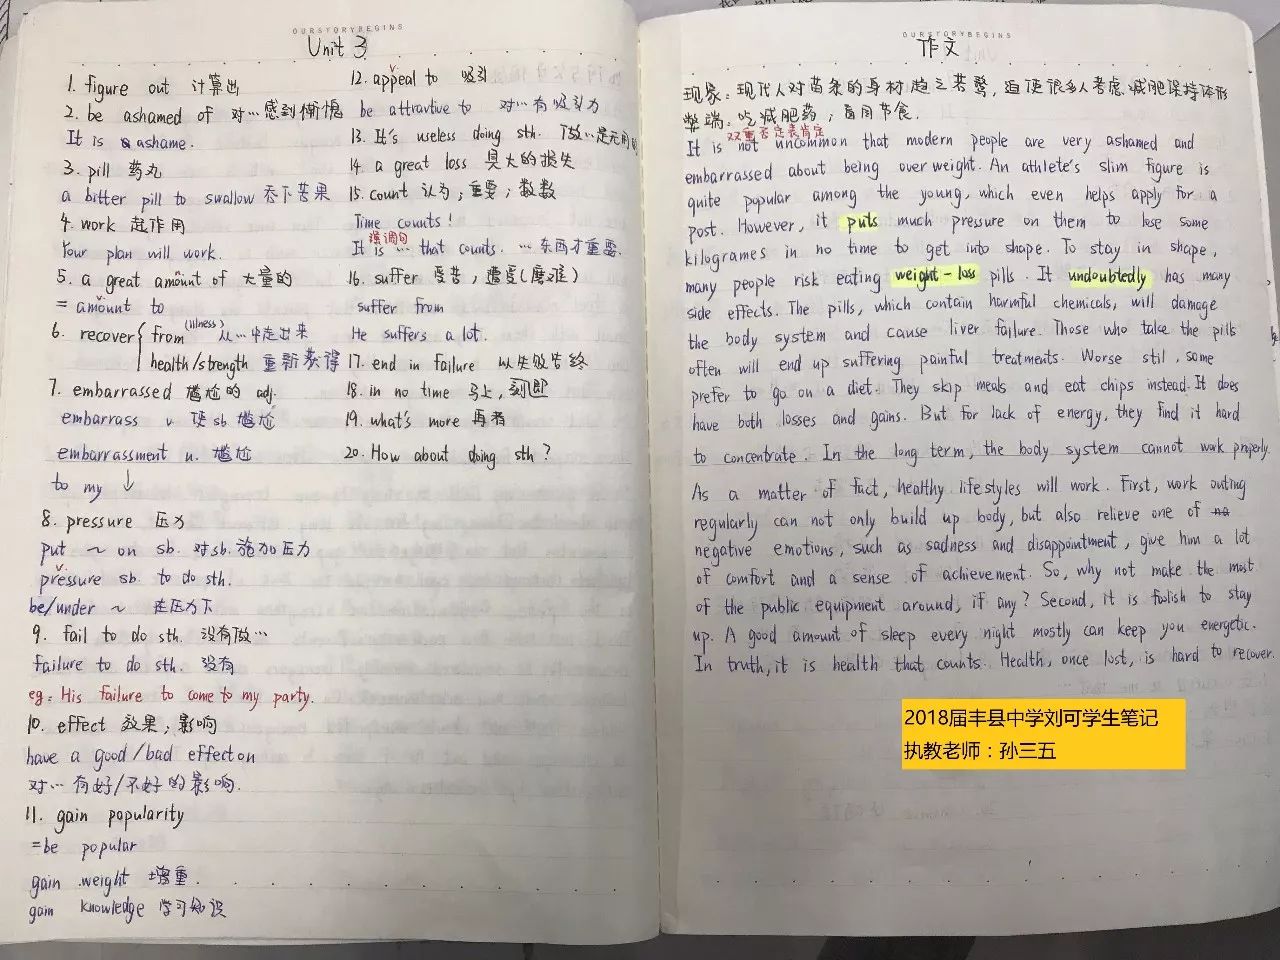 OURSTORYBEGINS
Unit 3
1. figure out 计算出
2. be ashamed of 对…感到惭愧
It is a ashame.
3. pill 药丸
a bitter pill to swallow 吞下苦果
4. work 起作用
Your plan will work.
5. a great amount of 大量的
n.
v.
= amount to
6. recover { from (illness) 从…中走出来
health/strength 重新获得
7. embarrassed 尴尬的 adj.
embarrass v 使sb 尴尬
embarrassment n. 尴尬
to my ↓
8. pressure 压力
put ~ on sb. 对sb. 施加压力
v.
pressure sb. to do sth.
be/under ~ 在压力下
9. fail to do sth. 没有做…
failure to do sth. 没有
eg: His failure to come to my party.
10. effect 效果; 影响
have a good/bad effect on
对… 有好/不好的影响.
11. gain popularity
=be popular
gain weight 增重.
gain knowledge 学习知识
v.
12. appeal to 吸引
be attravtive to 对…有吸引力
13. It's useless doing sth. 做…是无用的
14. a great loss 巨大的损失
15. count 认为; 重要; 数数
Time counts!
强调句
It is … that counts. …东西才重要.
16. suffer 受苦, 遭受(磨难)
suffer from
He suffers a lot.
17. end in failure 以失败告终
18. in no time 马上, 立即
19. what's more 再者
20. How about doing sth?
OURSTORYBEGINS
作文
现象: 现代人对苗条的身材趋之若鹜, 迫使很多人考虑减肥保持体形
弊端: 吃减肥药; 盲目节食.
双重否定表肯定
It is not uncommon that modern people are very ashamed and
embarrassed about being overweight. An athlete's slim figure is
quite popular among the young, which even helps apply for a
post. However, it puts much pressure on them to lose some
kilogrames in no time to get into shape. To stay in shape,
many people risk eating weight-loss pills. It undoubtedly has many
side effects. The pills, which contain harmful chemicals, will damage
the body system and cause liver failure. Those who take the pills
often will end up suffering painful treatments. Worse stil, some
prefer to go on a diet. They skip meals and eat chips instead. It does
have both losses and gains. But for lack of energy, they find it hard
to concentrate. In the long term, the body system cannot work properly.
As a matter of fact, healthy lifestyles will work. First, work outing
regularly can not only build up body, but also relieve one of na
negative emotions, such as sadness and disappointment, give him a lot
of comfort and a sense of achievement. So, why not make the most
of the public equipment around, if any? Second, it is foolish to stay
up. A good amount of sleep every night mostly can keep you energetic.
In truth, it is health that counts. Health, once lost, is hard to recover.
2018届丰县中学刘可学生笔记
执教老师：孙三五